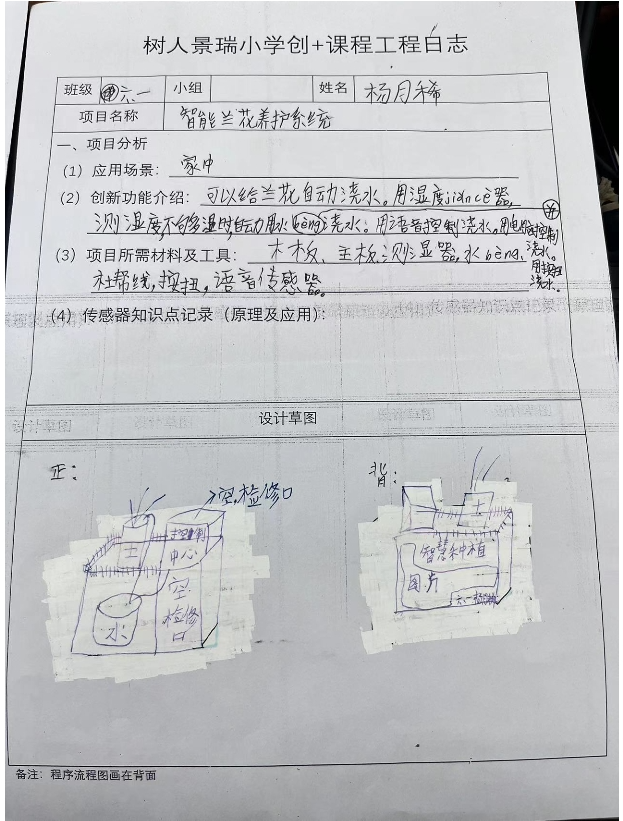 树人景瑞小学创+课程工程日志
班级 六一 小组 姓名 杨月稀
项目名称 智能兰花养护系统
一、项目分析
(1) 应用场景: 家中
(2) 创新功能介绍: 可以给兰花自动浇水。用湿度jiance器,
测湿度,不够湿时自动用水bèng浇水。用语音控制浇水。用电脑控制
浇水。
用按扭
浇水。
(3) 项目所需材料及工具: 木板、主板,测湿器,水bèng、
杜帮线,按扭,语音传感器。
(4) 传感器知识点记录 (原理及应用):
设计草图
正:
空,检修口
土
控制
中心
空
检修
口
水
背:
土
智慧种植
图片
六一
备注: 程序流程图画在背面